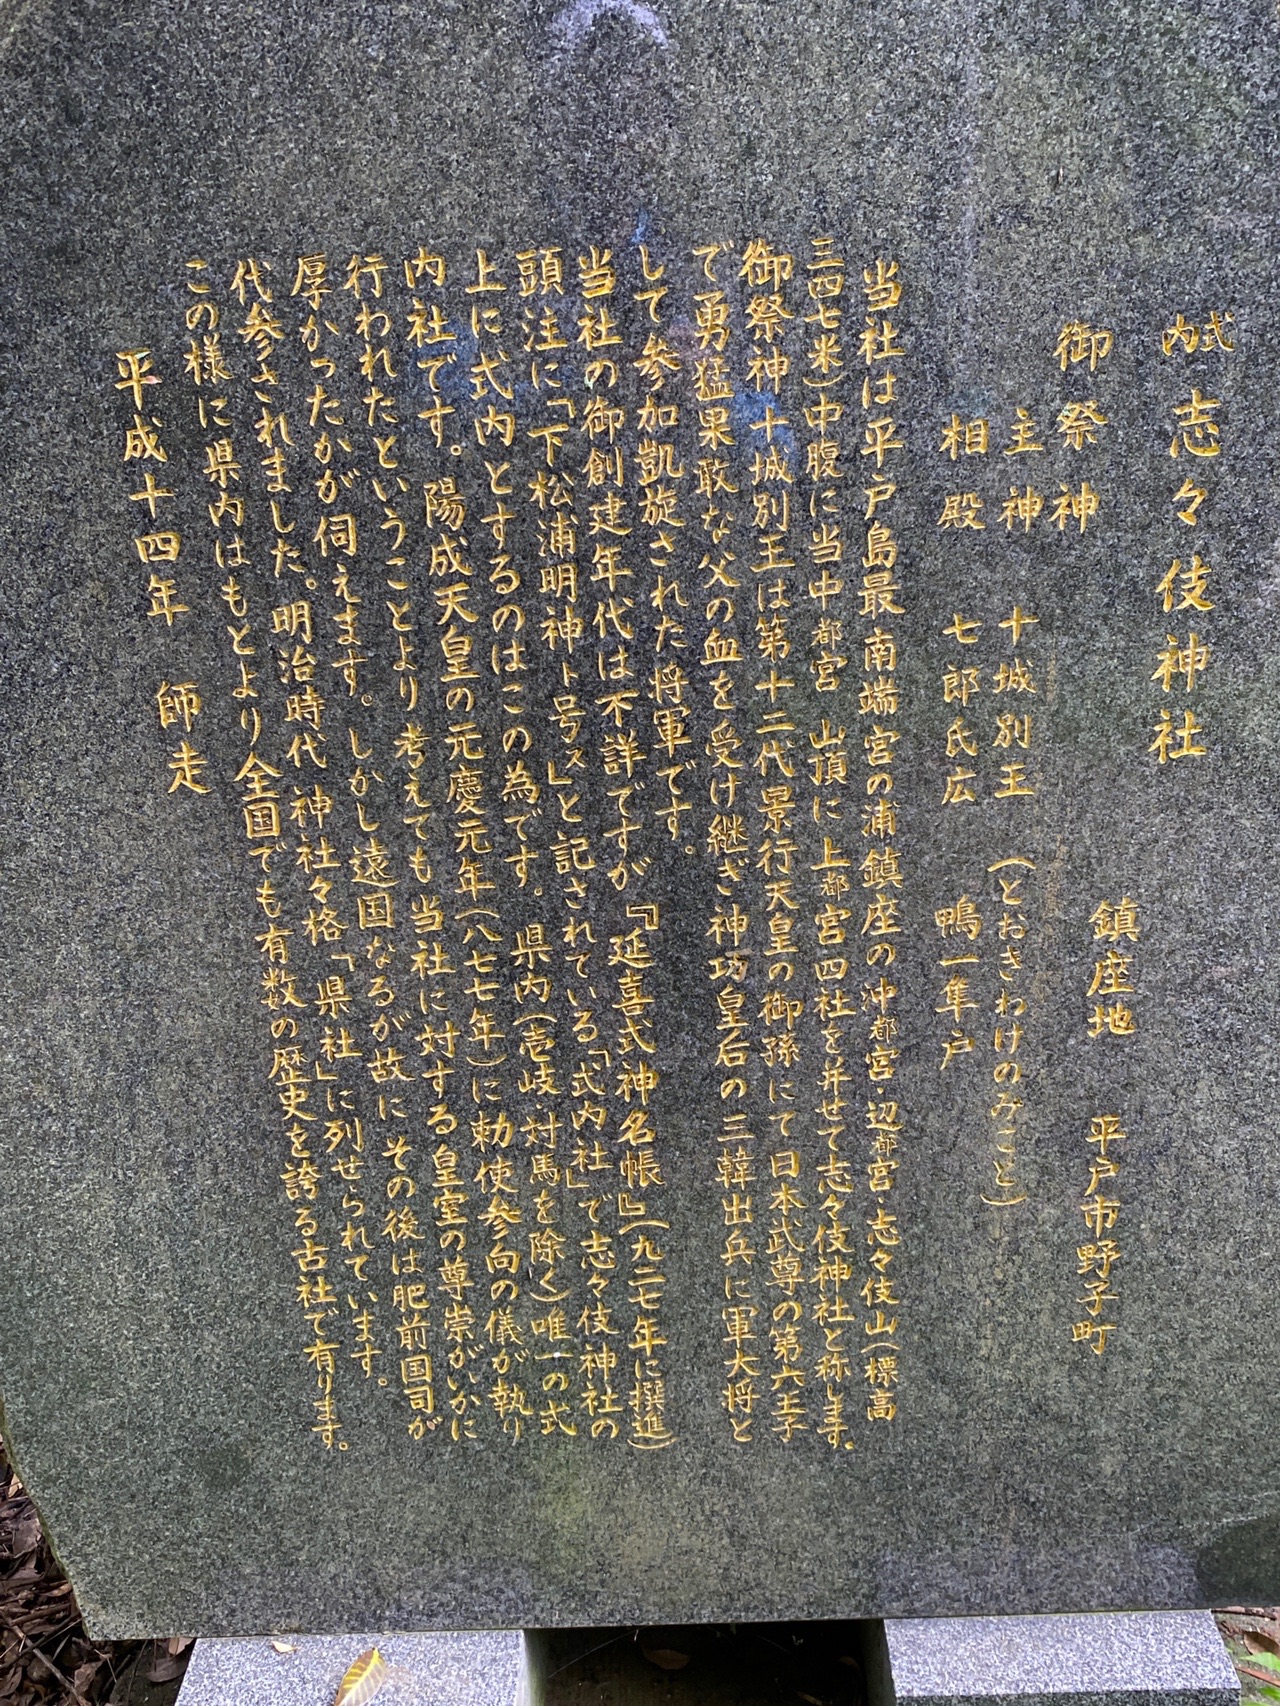 式内 志々伎神社
鎮座地 平戸市野子町
御祭神
主神 十城別王 (とおきわけのみこと)
相殿 七郎氏広 鴨一隼戸
当社は平戸島最南端宮の浦鎮座の沖都宮・辺都宮・志々伎山(標高
三四七米)中腹に当中都宮 山頂に上都宮四社を并せて志々伎神社と称します。
御祭神 十城別王は第十二代景行天皇の御孫にて日本武尊の第六王子
で勇猛果敢な父の血を受け継ぎ神功皇后の三韓出兵に軍大将と
して参加凱旋された将軍です。
当社の御創建年代は不詳ですが『延喜式神名帳』(九二七年に撰進)
頭注に「下松浦明神ト号ス」と記されている「式内社」で志々伎神社の
上に式内とするのはこの為です。県内(壱岐・対馬を除く)唯一の式
内社です。陽成天皇の元慶元年(八七七年)に勅使参向の儀が執り
行われたということより考えても当社に対する皇室の尊崇がいかに
厚かったかが伺えます。しかし遠国なるが故に その後は肥前国司が
代参されました。明治時代 神社々格「県社」に列せられています。
この様に県内はもとより全国でも有数の歴史を誇る古社で有ります。
平成十四年 師走